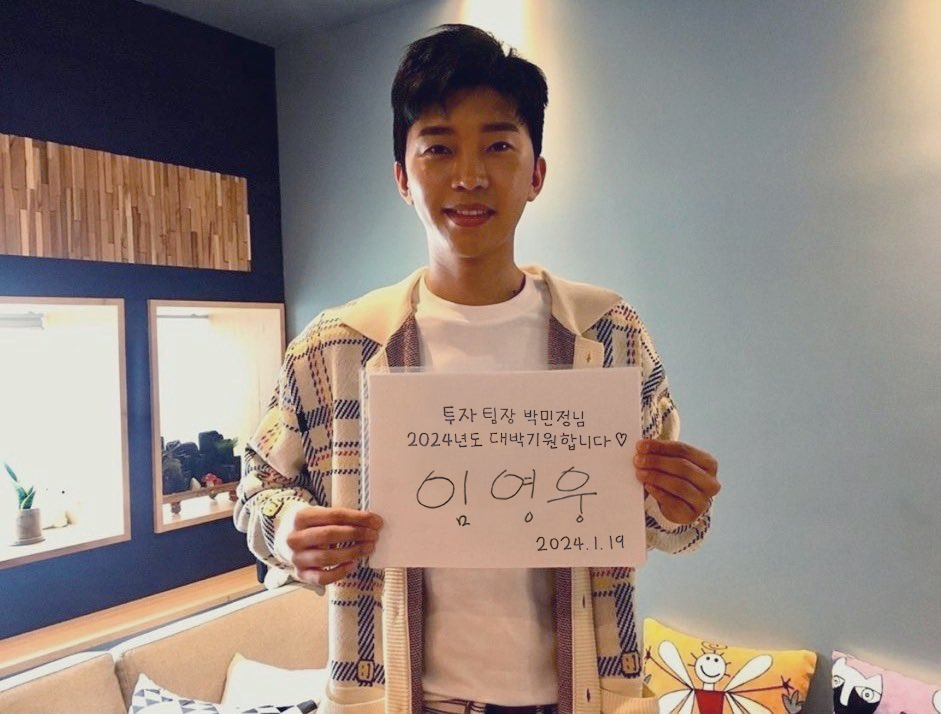 투자 팀장 박민정님
2024년도 대박기원합니다♡
임영웅
2024.1.19